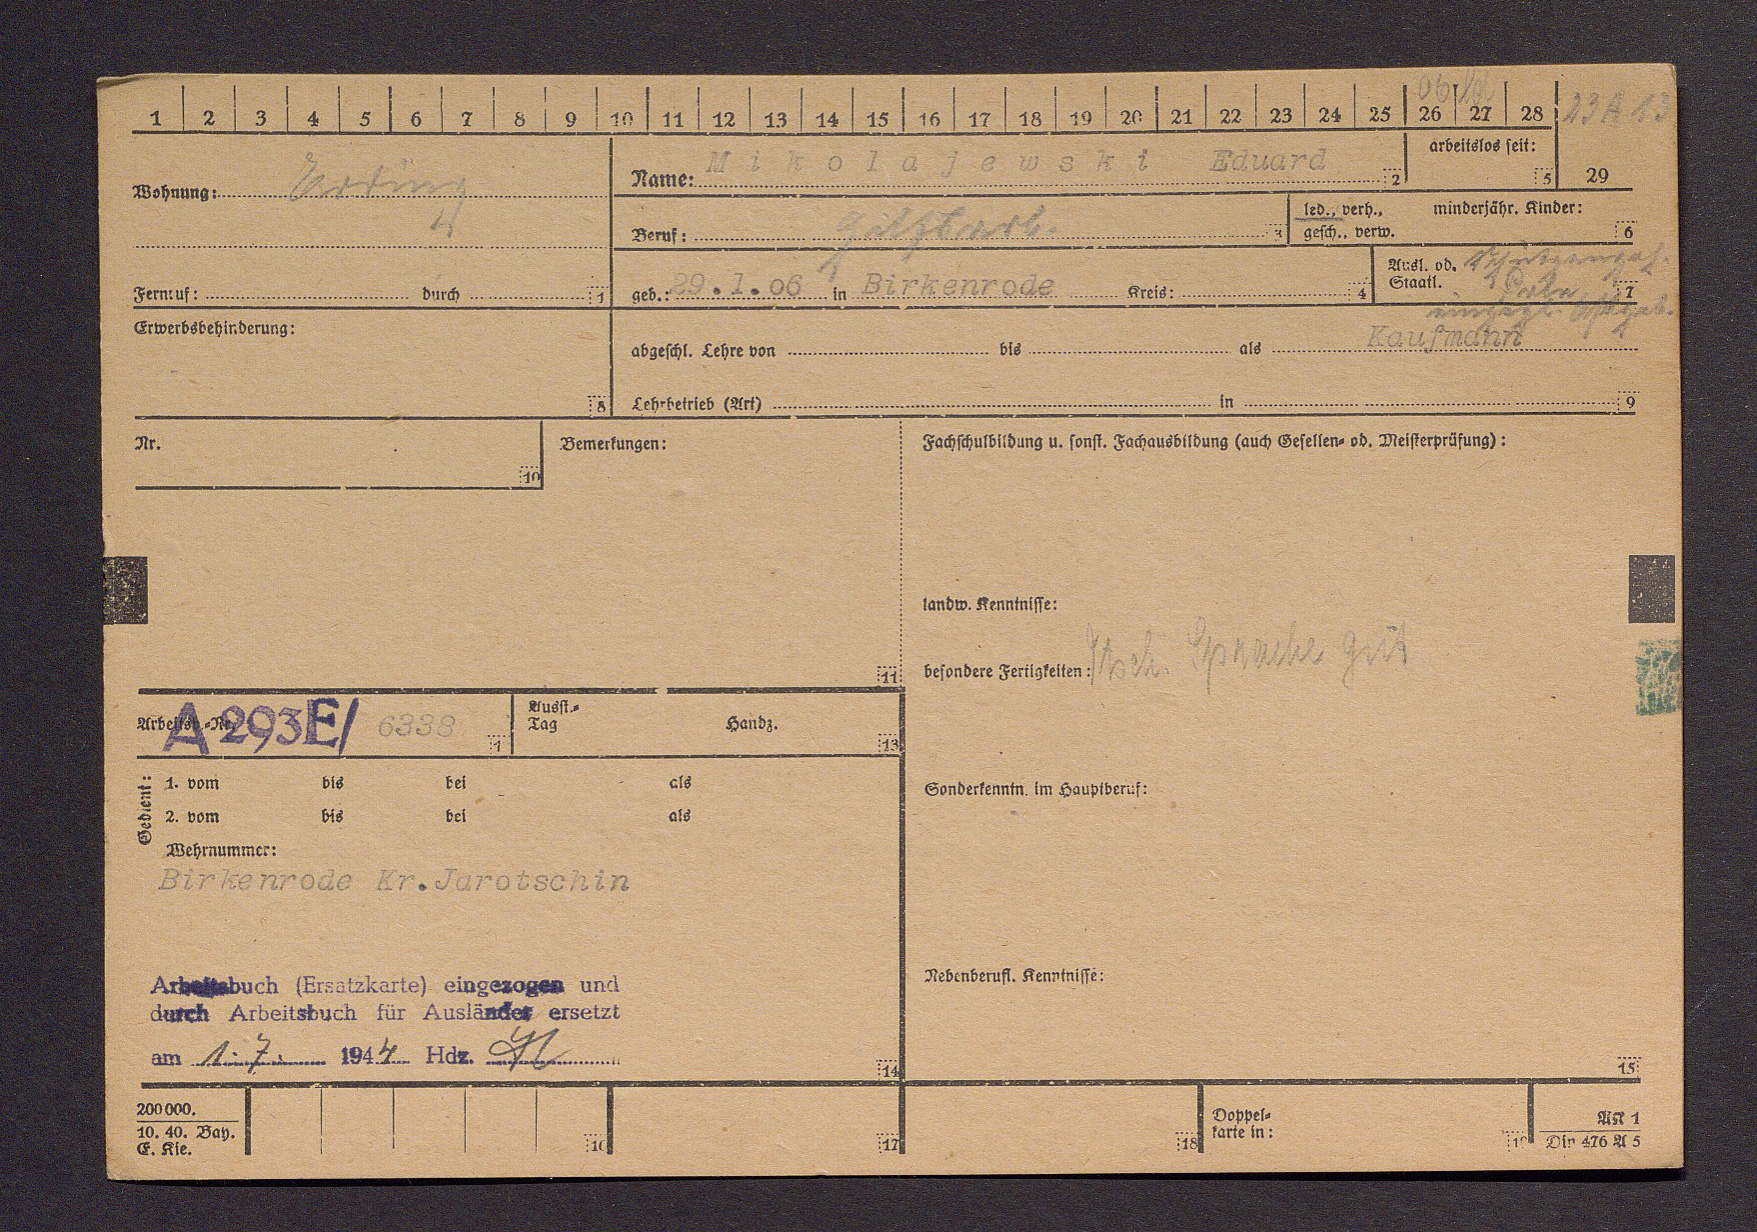 06
1 2 3 4 5 6 7 8 9 10 11 12 13 14 15 16 17 18 19 20 21 22 23 24 25 26 27 28 23A 13
arbeitslos seit: 5 29
Name: Mikolajewski Eduard 2
Wohnung: Erding
4
Beruf: Hilfsarb. 3
led., verh., minderjähr. Kinder:
gesch., verw. 6
Ausl. od. Schutzangeh.
Staatl. Pole 7
Fernruf: durch 1
geb.: 29.1.06 in Birkenrode Kreis: 4
Erwerbsbehinderung: 8
abgeschl. Lehre von bis als Kaufmann
Lehrbetrieb (Art) in 9
Nr. 10
Bemerkungen: 11
Fachschulbildung u. sonst. Fachausbildung (auch Gesellen- od. Meisterprüfung):
landw. Kenntnisse:
besondere Fertigkeiten: Dtsch. Sprache gut
Arbeitsb.-Nr. A 293E/ 6338 1
Ausst.-
Tag Handz. 13
Gedient:
1. vom bis bei als
2. vom bis bei als
Wehrnummer:
Birkenrode Kr.Jarotschin
Sonderkenntn. im Hauptberuf:
Nebenberufl. Kenntnisse:
Arbeitsbuch (Ersatzkarte) eingezogen und
durch Arbeitsbuch für Ausländer ersetzt
am 1.7. 1944 Hdz.
14
15
200000.
10. 40. Bay.
E. Kie.
16 17 18
Doppel-
karte in: 19
AN 1
Din 476 A 5